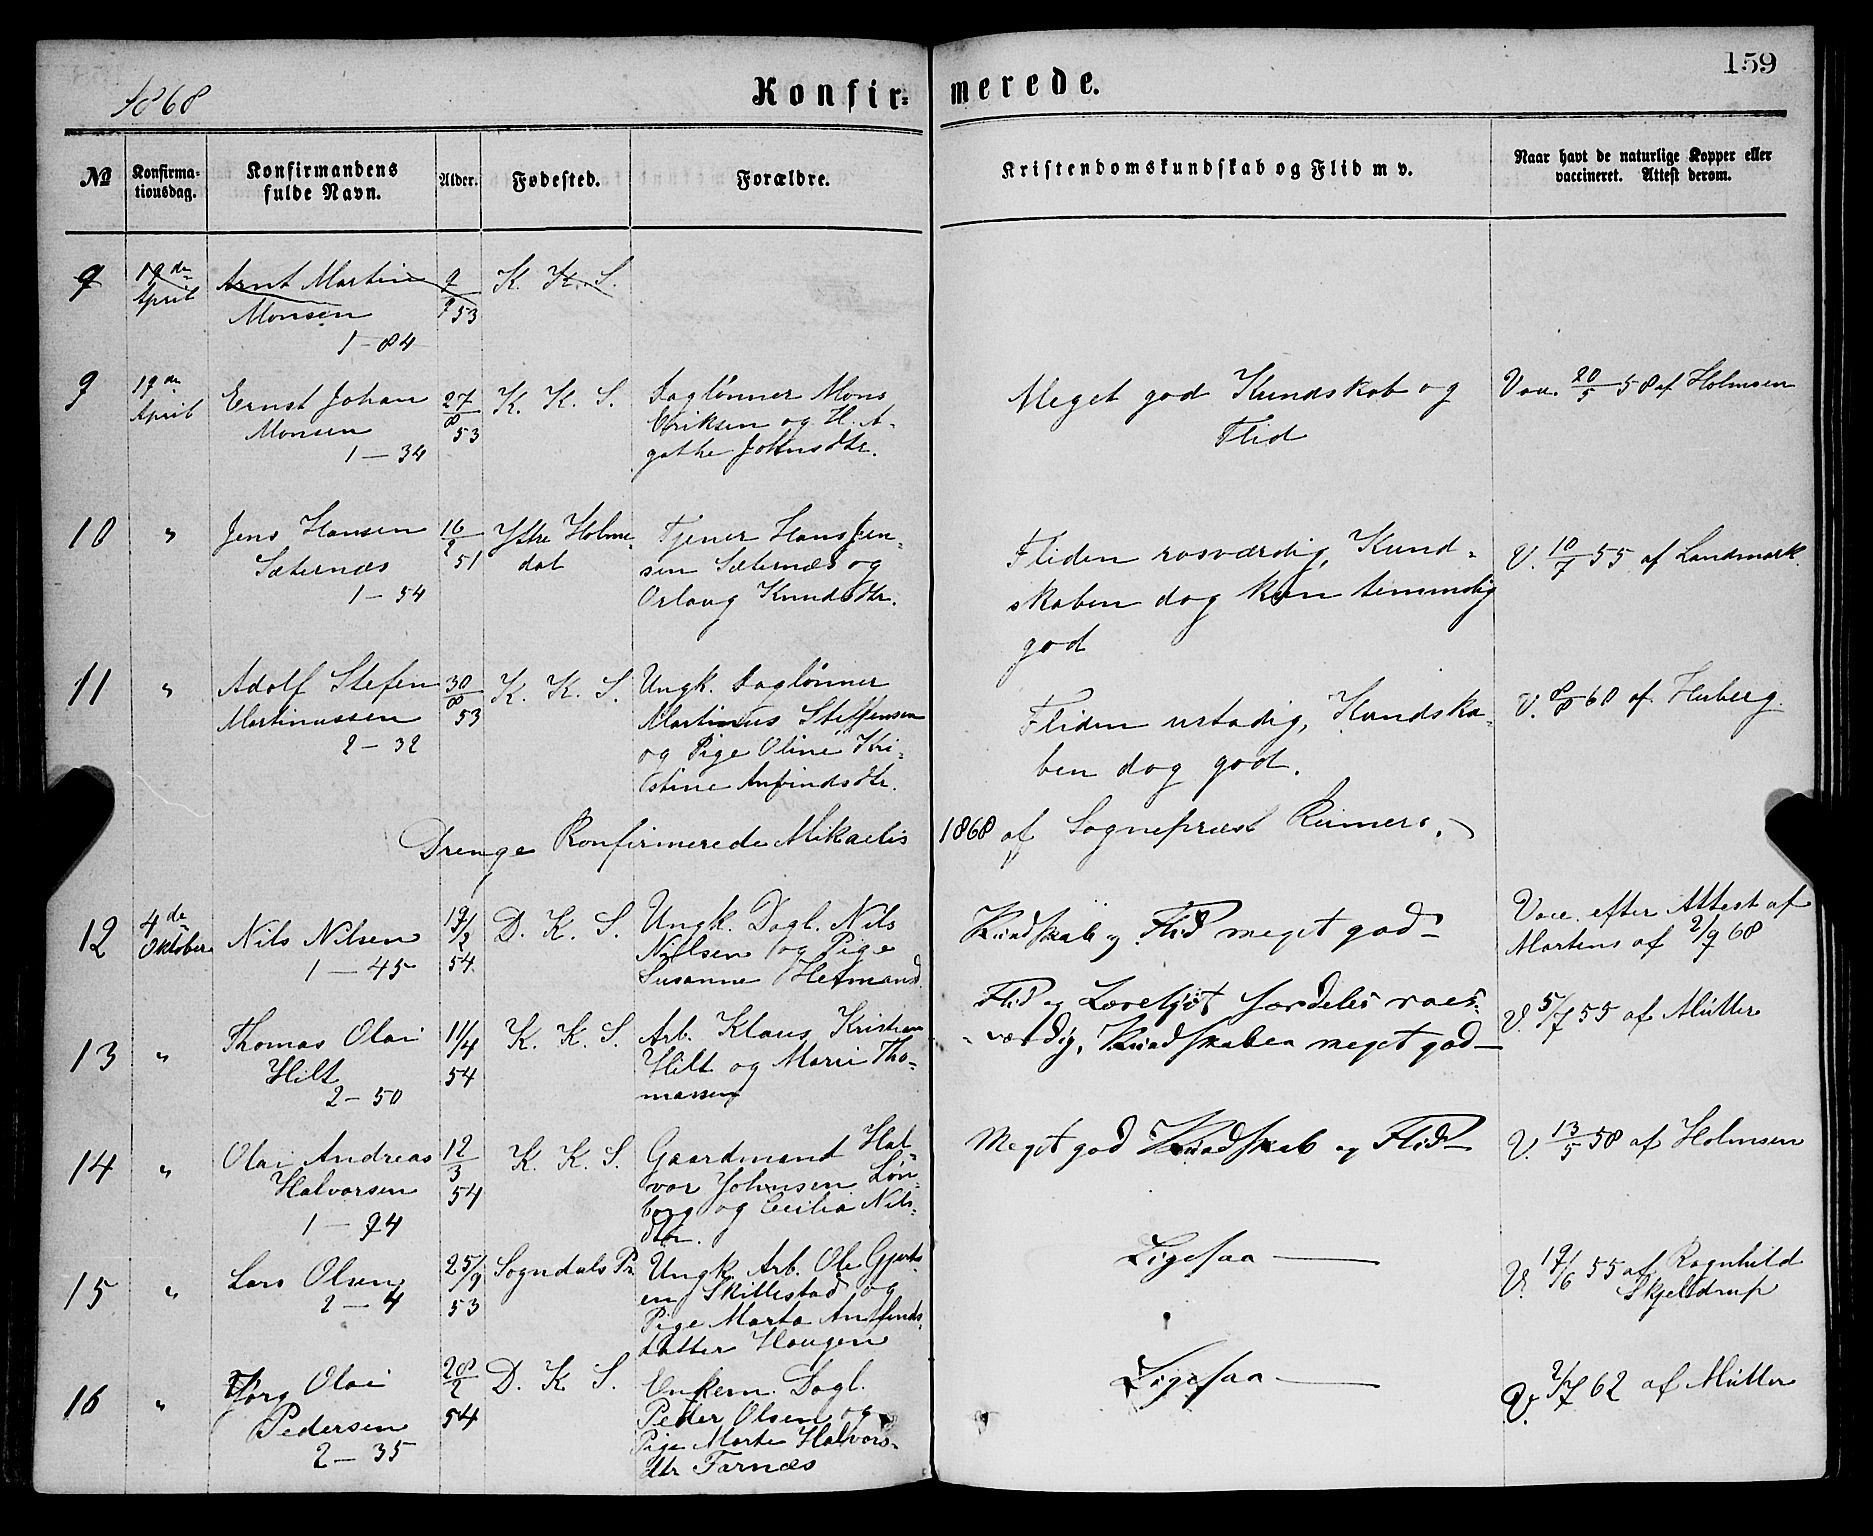 159
1868
Konfir= merede.
№
Konfirma-
tionsdag.
Konfirmandens
fulde Navn.
Alder.
Fødested.
Forældre.
Kristendomskundskab og Flid m v.
Naar havt de naturlige Kopper eller
vaccineret. Attest derom.
9
19de
April
Arnt Martin
Monsen
1-84
9
9 53
K. K. S.
9
19de
April
Ernst Johan
Monsen
1-34
27
8
53
K. K. S.
Daglønner Mons
Eriksen og H. A-
gathe Johnsdtr.
Meget god Kundskab og
Flid
Vacc. 20/5 58 af Holmsen
10
"
Jens Hansen
Sæternæs
1-54
16
2
51
Ytre Holme-
dal
Tjener Hans Jen-
sen Sæternæs og
Orlaug Knudsdtr.
Fliden rosværdig, Kund-
skaben dog kun temmelig
god
V. 10/7 55 af Landmark.
11
"
Adolf Stefen
Martinussen
2-32
30
8
53
K. K. S.
Ungk. Daglønner
Martinus Steffensen
og Pige Oline Kri-
stine Anfindsdtr.
Fliden ustadig, Kundska-
ben dog god.
V. 8/8 60 af Heiberg.
Drenge Konfirmerede Mikaelis 1868 af Sognepræst Reimers.
12
4de
Oktober
Nils Nilsen
1-45
19/2
54
D. K. S.
Ungk. Dagl. Nils
Nilsen og Pige
Susanne Hermansd
Kundskab og Flid meget god
Vacc. efter Attest af
Martens af 2/9 68
13
"
Thomas Olai
Hilt
2-50
11/4
54
K. K. S.
Arb. Klaus Kristian
Hilt og Marie Tho-
massen
Flid og Lærelyst særdeles roes-
værdig, Kundskaben meget god
V. 5/7 55 af Müller
14
"
Olai Andreas
Halvorsen
1-94
12
3
54
K. K. S.
Gaardmand Hal-
vor Johnsen Løn-
borg og Cecilia Nils-
dtr.
Meget god Kundskab og Flid
V. 13/5 58 af Holmsen
15
"
Lars Olsen
2-4
25/9
53
Sogndals Pr.
Ungk. Arb. Ole Gjerts-
en Skillestad og
Pige Marta Anfinds-
datter Haugen
Ligesaa
V. 19/6 55 af Ragnhild
Skjeldrup
16
"
Olai
Pedersen
2-35
28
2
54
D. K. S.
Enkem. Dagl.
Peder Olsen og
Pige Marte Halvors-
dtr Farnæs
Ligesaa
V. 2/7 62 af Müller